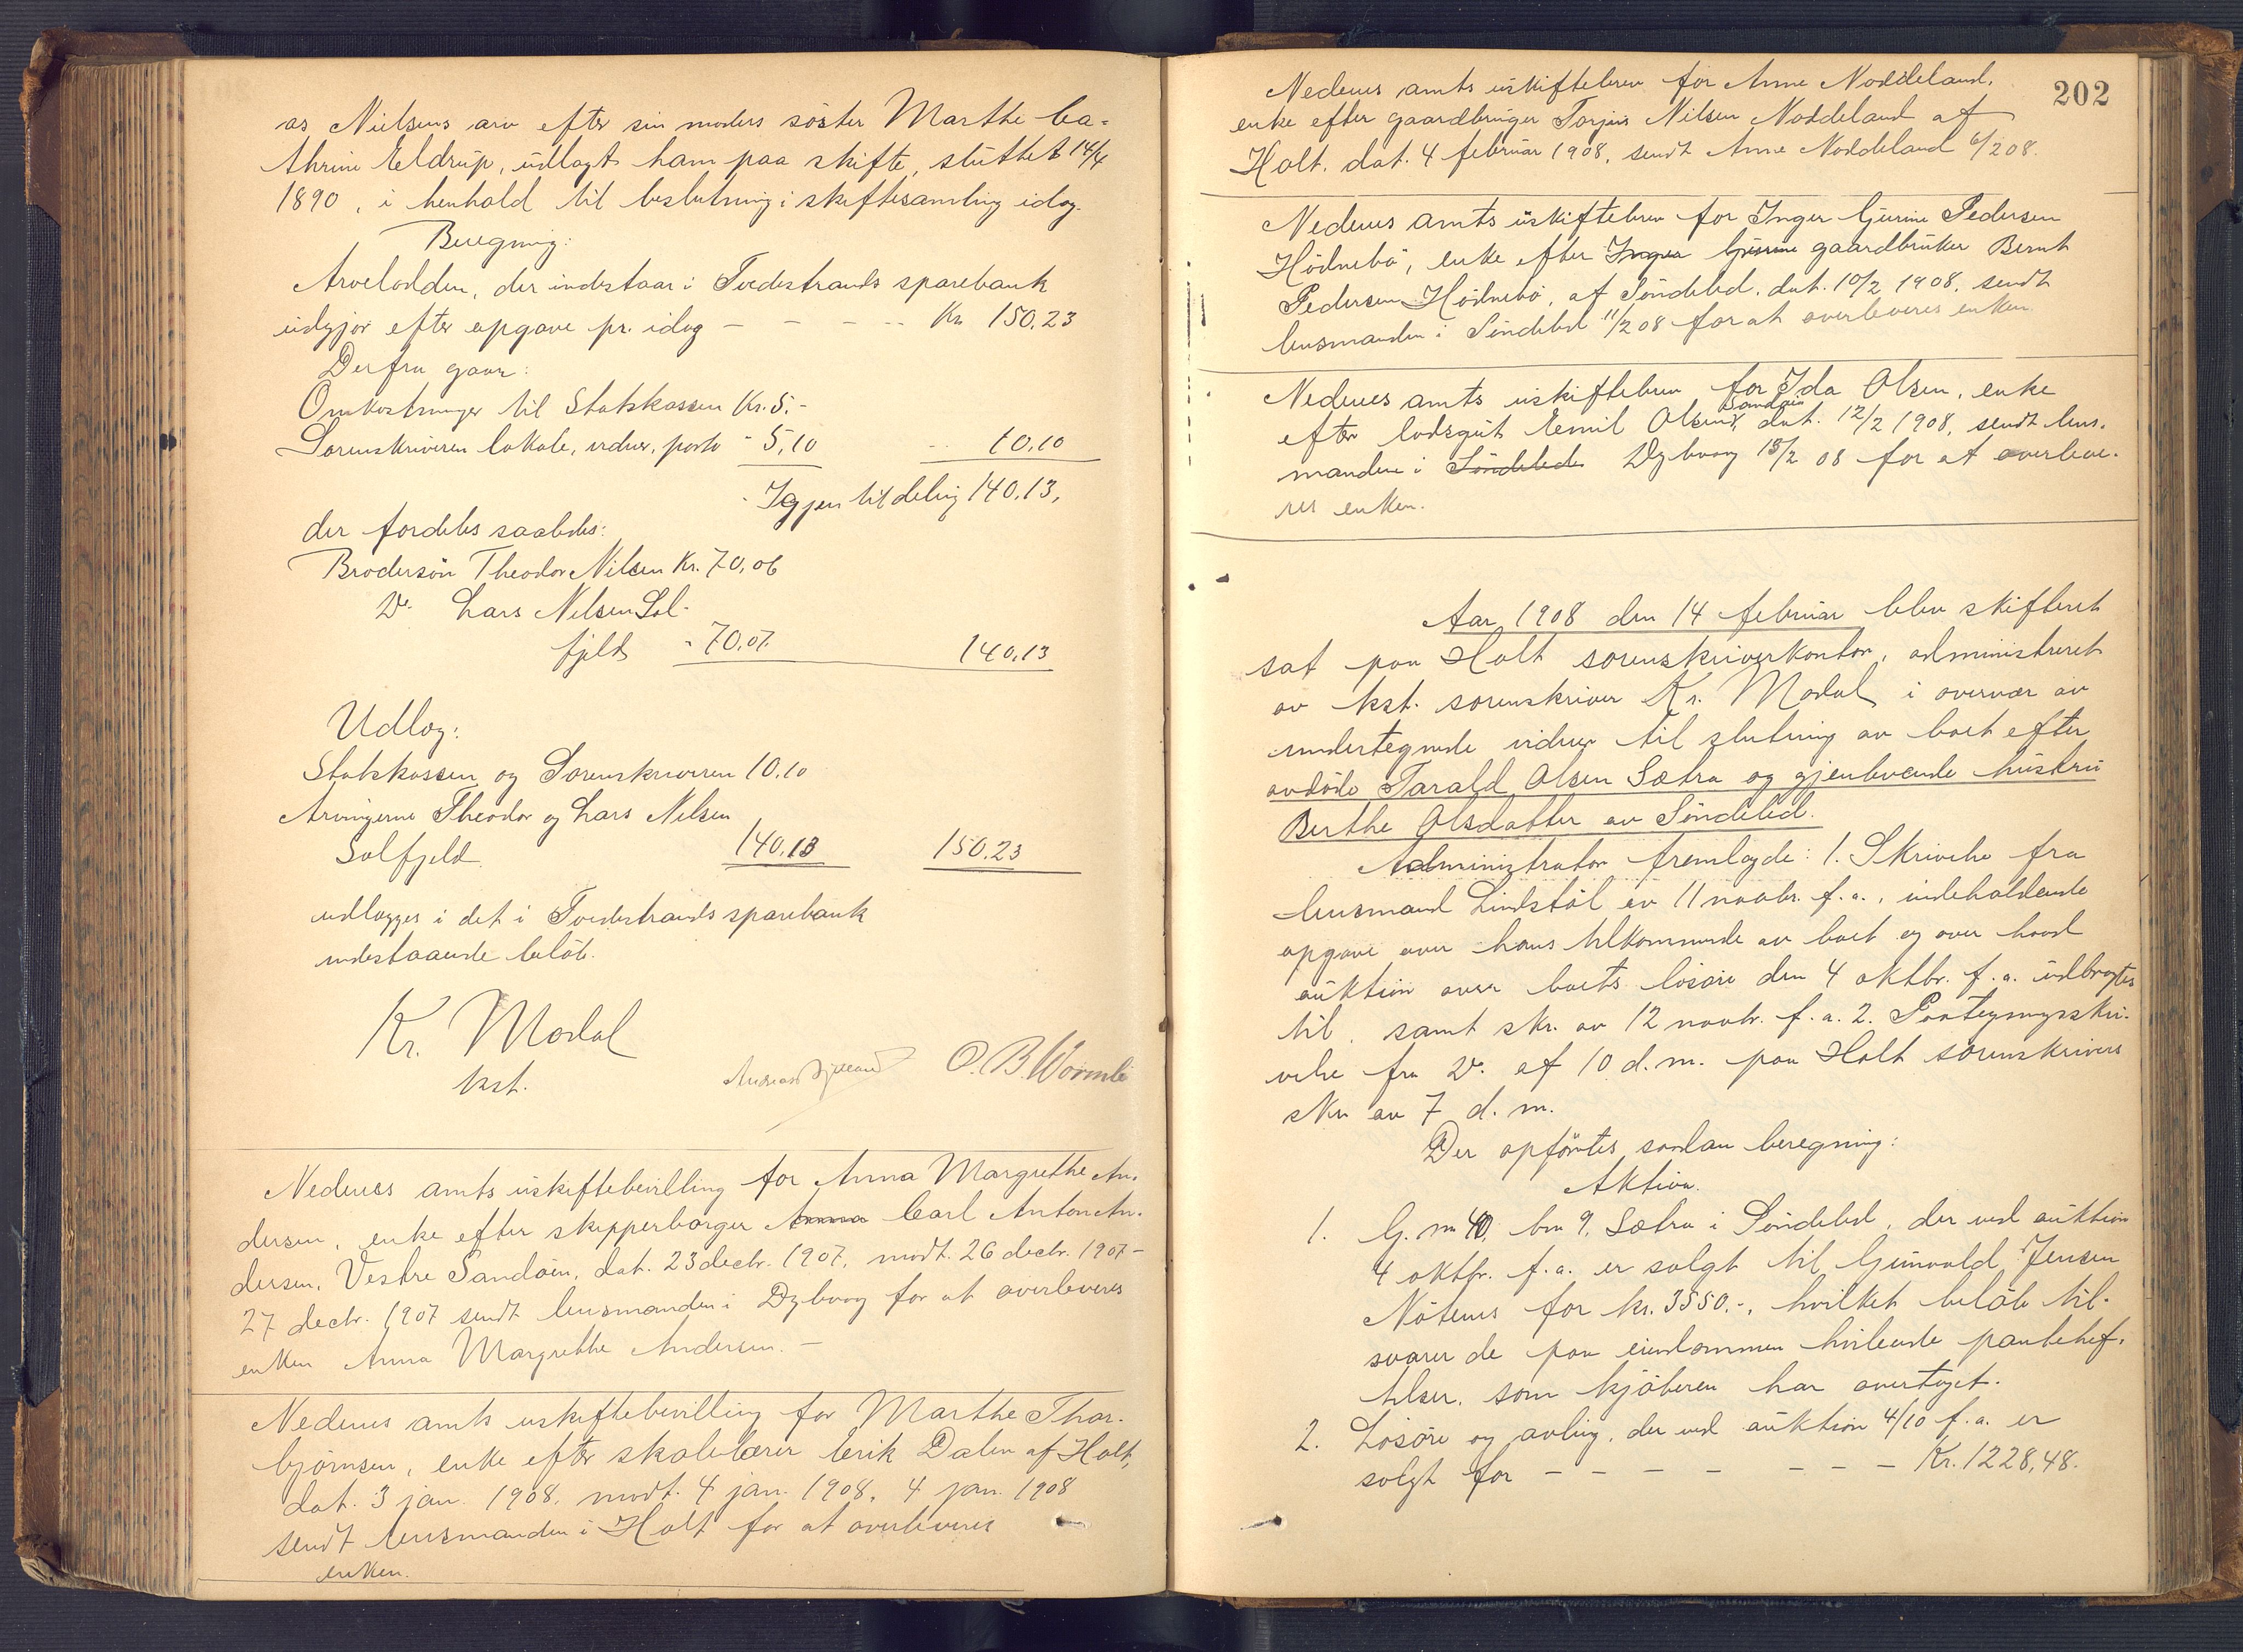 as Nielsens arv efter sin moders söster Marthe Ca=
thrine Eldrup, udlagt ham paa skifte, sluttet 14/4
1890, i henhold til beslutning i skiftesamling idag.
Beregning:
Arvelodden, der indestaar i Tvedestrands sparebank
udgjør efter opgave pr. idag - - - - - Kr. 150.23
Derfra gaar:
Omkostninger til Statskassen Kr. 5.-
Sorenskriveren lokale, vidner, porto " 5,10 - 10.10
Igjen til deling 140.13,
der fordeles saaledes:
Brodersön Theodor Nilsen Kr. 70,06
Do. Lars Nilsen Sol-
fjeld " 70.07. 140.13
Udlæg:
Statskassen og Sorenskriveren 10.10
Arvingerne Theodor og Lars Nilsen
Solfjeld 140.13 150.23
udlægges i det i Tvedestrands sparebank
indestaaende beløb.
Kr. Modal
kst.
O. B. Wormli
Nedenes amts uskiftebevilling for Anna Margrethe An-
dersen, enke efter skipperborger Anna Carl Anton An-
dersen, Vestre Sandøen, dat. 23 decbr. 1907, modt. 26 decbr. 1907 -
27 decbr. 1907 sendt lensmanden i Dybvaag for at overleveres
enken Anna Margrethe Andersen. -
Nedenes amts uskiftebevilling for Marthe Thor-
bjørnsen, enke efter skolelærer Erik Dalen af Holt,
dat. 3 jan. 1908. modt. 4 jan. 1908, 4 jan. 1908
sendt lensmanden i Holt for at overleveres
enken.
202
Nedenes amts uskiftebrev for Anne Noddeland,
enke efter gaardbruger Torjus Nilsen Noddeland af
Holt. dat. 4 februar 1908, sendt Anne Noddeland 6/2 08.
Nedenes amts uskiftebrev for Inger Gurine Pedersen
Hödnebö, enke efter Inger Gurine gaardbruker Bernt
Pedersen Hödnebö, af Söndeled, dat. 10/2 1908, sendt
lensmanden i Söndeled 11/2 08 for at overleveres enken.
Nedenes amts uskiftebrev for Ida Olsen, enke
efter lodsgut Emil Olsen, Sandøen dat. 12/2 1908, sendt lens-
manden i Söndeled Dybvaag 13/2 08 for at overleve-
res enken.
Aar 1908 den 14 februar blev skifteret
sat paa Holt sorenskriverkontor, administreret
av kst. sorenskriver Kr. Modal i overvær av
undertegnede vidner til slutning av boet efter
avdöde Tarald Olsen Sætra og gjenlevende hustru
Berthe Olsdatter av Söndeled.
Administrator fremlagde: 1. Skrivelse fra
lensmand Lindstöl av 11 novbr. f.a., indeholdende
opgave over hans tilkommende av boet og over hvad
auktion over boets løsøre den 4 oktbr. f.a. utbragtes
til, samt skr. av 12 novbr. f.a. 2. Paategningsskri-
velse fra Do. af 10 d.m. paa Holt sorenskrivers
skr av 7 d.m.
Der opförtes saadan beregning:
Aktiva.
1. G. nr 40, bnr 9, Sætra i Söndeled, der ved auktion
4 oktbr. f.a. er solgt til Gunvald Jensen
Nötenes for kr. 3550.-, hvilket beløb til-
svarer de paa eiendommen hvilende pantehef-
telser, som kjøberen har overtaget.
2. Løsøre og avling, der ved auktion 4/10 f.a. er
solgt for - - - - - - - Kr. 1228,48.